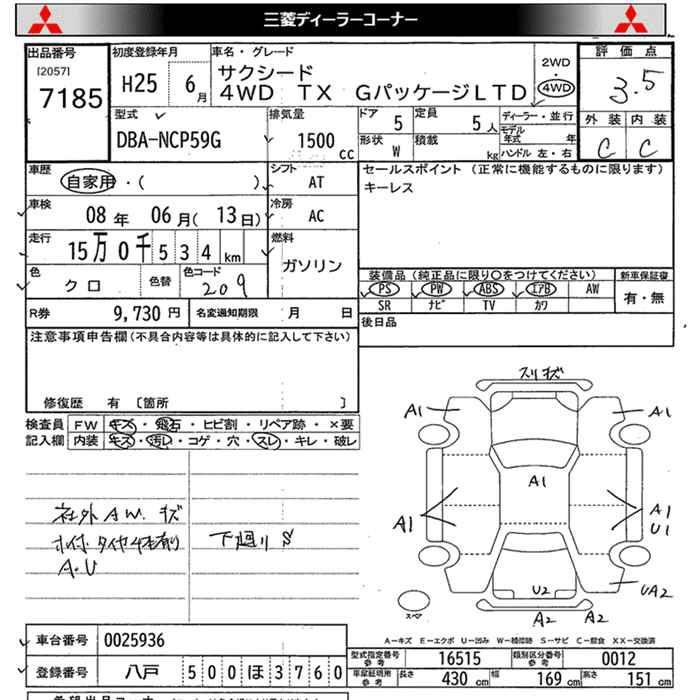 三菱ディーラーコーナー
出品番号
[2057]
7185
初度登録年月
H25 6月
車名・グレード
サクシード
4WD TX GパッケージLTD
2WD
4WD
評価点
3.5
外装 内装
C C
型式
DBA-NCP59G
排気量
1500 cc
ドア 5
定員 5人
ディーラー・並行
モデル年式 年
形状 W
積載 kg
ハンドル 左・右
車歴
自家用・( )
シフト AT
セールスポイント (正常に機能するものに限ります)
キーレス
車検
08年 06月(13日)
冷房 AC
走行
15万0千534km
燃料 ガソリン
色 クロ
色替
色コード 209
装備品 (純正品に限り○をつけてください)
新車保証書
PS PW ABS エアB AW
SR ナビ TV カワ
有・無
R券 9,730円
名変通知期限 月 日
後日品
注意事項申告欄(不具合内容等は具体的に記入して下さい)
修復歴 有 [箇所 ]
検査員記入欄
FW キズ・飛石・ヒビ割・リペア跡・×要
内装 キズ・汚レ・コゲ・穴・スレ・キレ・破レ
社外AW.キズ
タイヤ4本
A.U
下廻りS
スリキズ
A1
A1
A1
A1
A1
U1
U2
UA2
A2
A2
スペア
A－キズ E－エクボ U－凹み W－補修跡 S－サビ C－腐食 XX－交換済
車台番号 0025936
登録番号 八戸 500ほ3760
型式指定番号 参考 16515
類別区分番号 参考 0012
車庫証明用 参考
長さ 430 cm
幅 169 cm
高さ 151 cm